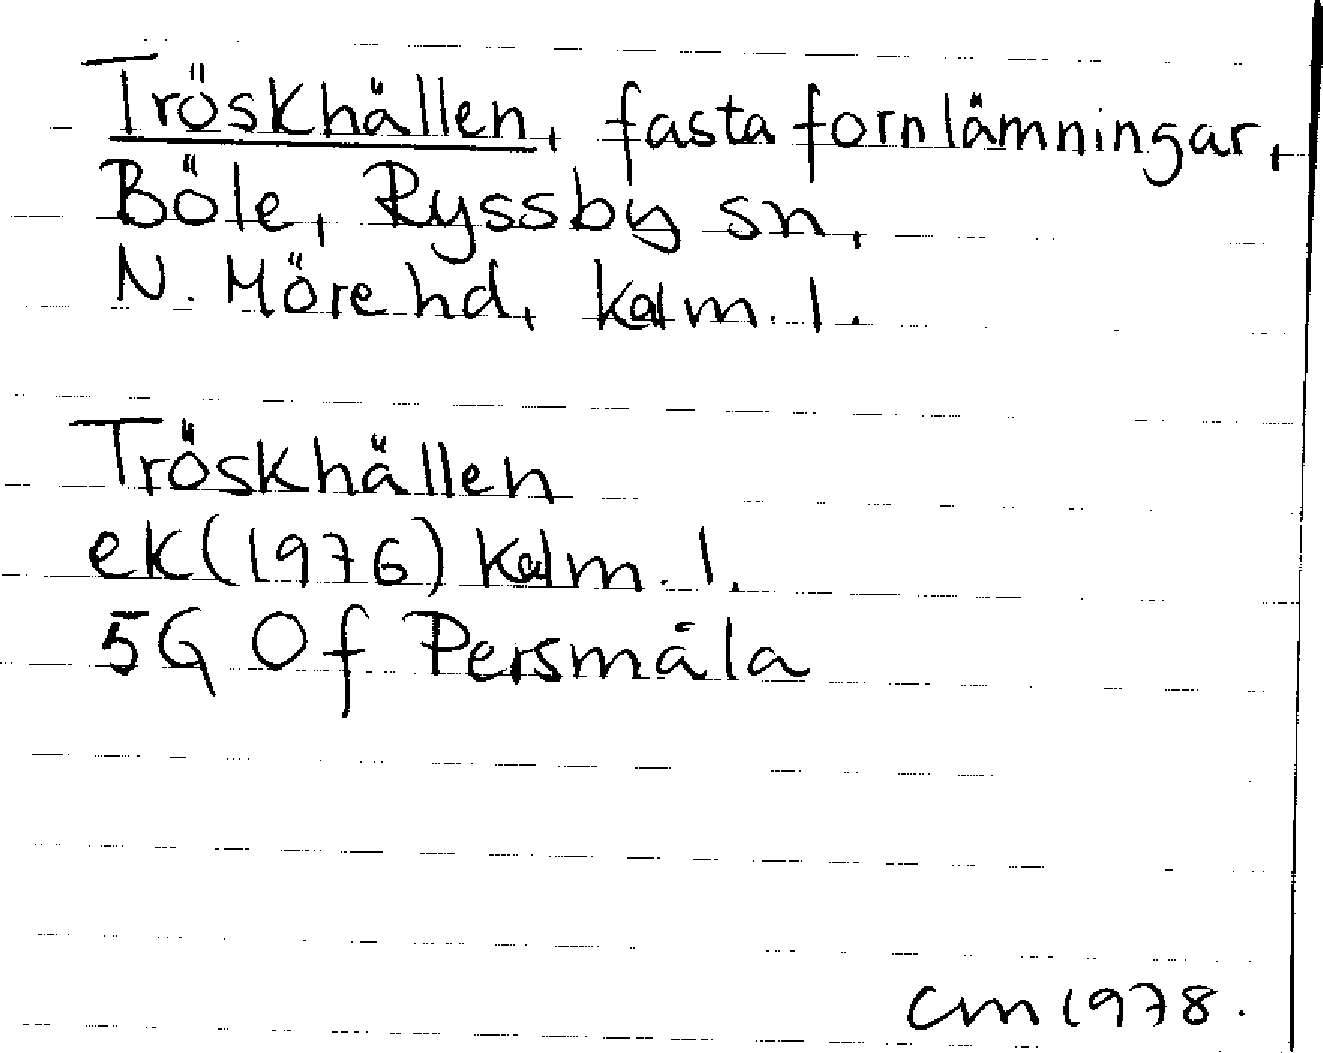 Tröskhällen, fasta fornlämningar,
Böle, Ryssby sn,
N. Möre hd, Kalm. l.
Tröskhällen
ek (1976) Kalm. l.
5G 0f Persmåla
CM 1978.